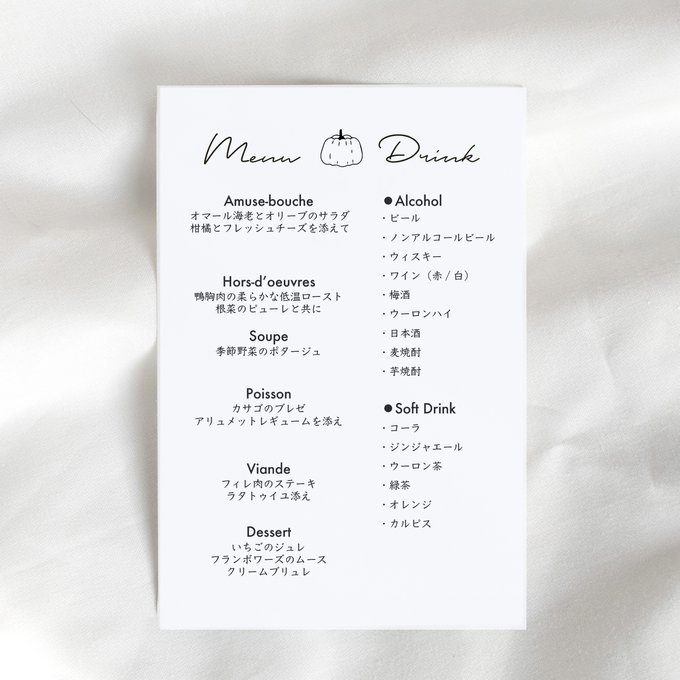 Menu
Amuse-bouche
オマール海老とオリーブのサラダ
柑橘とフレッシュチーズを添えて
Hors-d'oeuvres
鴨胸肉の柔らかな低温ロースト
根菜のピューレと共に
Soupe
季節野菜のポタージュ
Poisson
カサゴのブレゼ
アリュメットレギュームを添え
Viande
フィレ肉のステーキ
ラタトゥイユ添え
Dessert
いちごのジュレ
フランボワーズのムース
クリームブリュレ
Drink
●Alcohol
・ビール
・ノンアルコールビール
・ウィスキー
・ワイン（赤/白）
・梅酒
・ウーロンハイ
・日本酒
・麦焼酎
・芋焼酎
●Soft Drink
・コーラ
・ジンジャエール
・ウーロン茶
・緑茶
・オレンジ
・カルピス